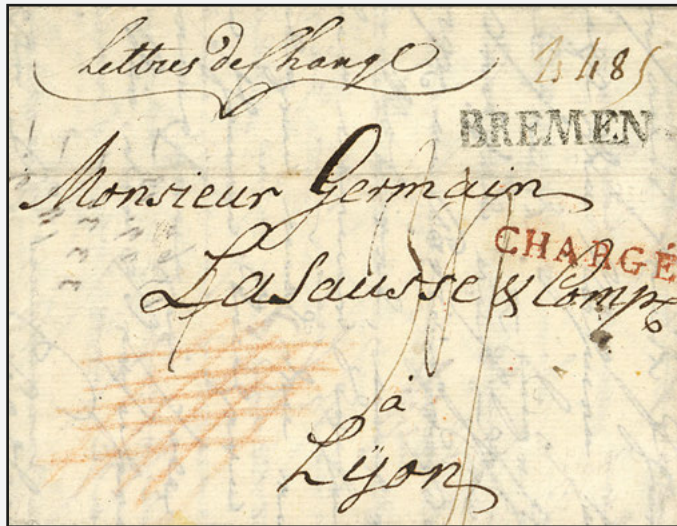 Lettres de Change
BREMEN
Monsieur Germain
CHARGÉ
LaSausse & Comp.
à
Lÿon